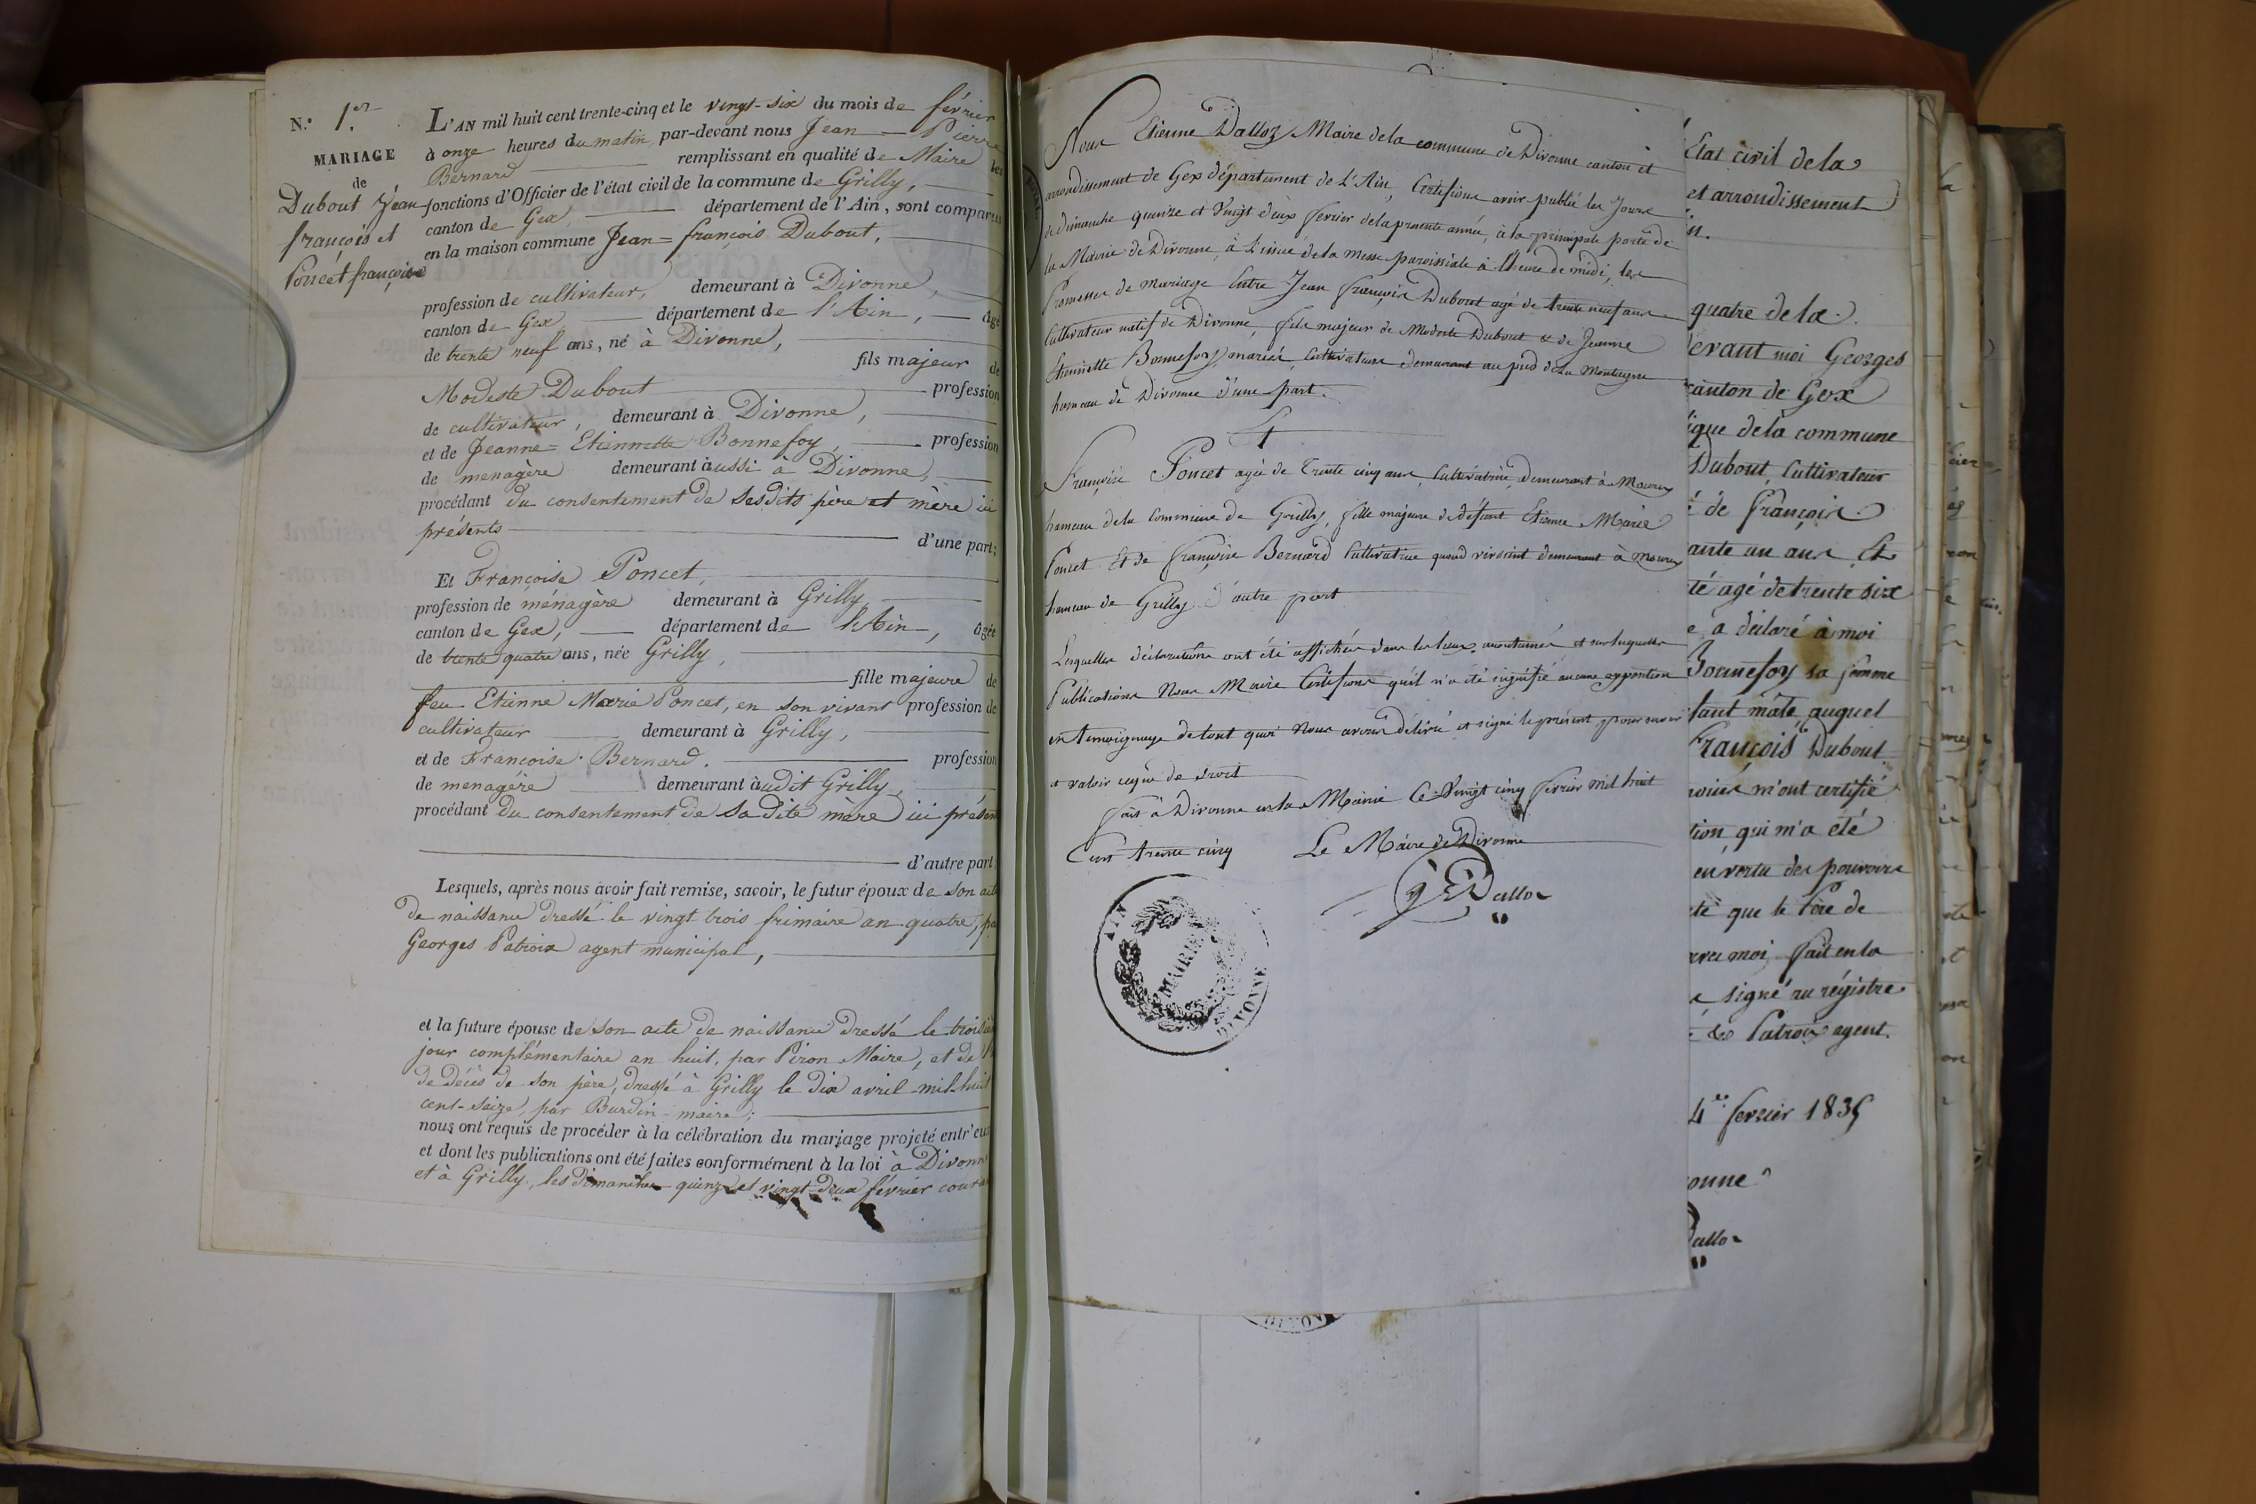 N.o 1.er
MARIAGE
de
Dubout Jean
françois et
Poncet françoise
L'AN mil huit cent trente-cinq et le vingt-six du mois de février
à onze heures du matin, par-devant nous Jean Pierre
Bernard remplissant en qualité de Maire les
fonctions d'Officier de l'état civil de la commune de Grilly,
canton de Gex, département de l'Ain, sont comparus
en la maison commune Jean=françois Dubout,
profession de cultivateur, demeurant à Divonne,
canton de Gex département de l'Ain, âgé
de trente neuf ans, né à Divonne,
fils majeur de
Modeste Dubout profession
de cultivateur, demeurant à Divonne,
et de Jeanne=Etiennette Bonnefoy, profession
de menagère demeurant aussi à Divonne,
procédant du consentement de sesdits père et mère ici
présents d'une part;
Et Françoise Poncet,
profession de ménagère demeurant à Grilly
canton de Gex, département de l'Ain, âgée
de trente quatre ans, née Grilly,
fille majeure de
feu Etienne Marie Poncet, en son vivant profession de
cultivateur demeurant à Grilly,
et de Françoise Bernard. profession
de menagère demeurant audit Grilly,
procédant du consentement de sa dite mère ici présen
d'autre part;
Lesquels, après nous avoir fait remise, savoir, le futur époux de son acte
de naissance dressé le vingt trois frimaire an quatre, pa
Georges Patroix agent municipal,
et la future épouse de son acte de naissance dressé le troisiè
jour complémentaire an huit, par Piron Maire, et de
de décès de son père, dressé à Grilly le dix avril mil-huit
cent-seize, par Burdin maire;
nous ont requis de procéder à la célébration du mariage projeté entr'eux
et dont les publications ont été faites conformément à la loi à Divonne
et à Grilly, les dimanches quinze et vingt-deux février coura
Nous Etienne Dalloz Maire de la commune de Divonne canton et
arrondissement de Gex département de L'Ain, Certifions avoir publié les Jours
de dimanche quinze et Vingt deux fevrier de la presente année, à la principale porte de
la Mairie de Divonne, à L'issue de la messe paroissiale à l'heure de midi, les
Promesses de mariage Entre Jean françois Dubout agé de trente neuf ans
Cultivateur natif de Divonne, fils majeur de Modeste Dubout & de Jeanne
Etiennette Bonnefoy, mariés, Cultivateurs demeurant au pied de La Montagne
hameau de Divonne d'une part.
Et
Françoise Poncet agée de Trente cinq ans, Cultivatrice, demeurant à Mourex
hameau de la Commune de Grilly, fille majeure de défunt Etienne Marie
Poncet Et de françoise Bernard Cultivatrice quand vivoient demeurant à Mourex
hameau de Grilly d'autre part
Lesquelles déclarations ont été affichées dans les lieux accoutumés et sur lesquelles
Publications Nous Maire Certifions qu'il n'a été signifié aucune opposition
en temoignage de tout quoi Nous avons délivré et signé le présent pour servir
et valoir ce que de droit
fait à Divonne en la Mairie Ce Vingt cinq fevrier mil huit
Cent trente cinq Le Maire de Divonne
Dalloz
AIN
MAIRIE
DIVONNE
État civil de la
et arrondissement
quatre de la
devant moi Georges
canton de Gex
ique de la commune
Dubout, Cultivateur
é de françois
ante un ans, Et
té agé de trente six
e, a déclaré à moi
Bonnefoy sa femme
fant mâle, auquel
François Dubout
m'ont certifié
tion qui m'a été
en vertu des pouvoirs
té que le Père de
avec moi, fait en la
signé au régistre
Patroix agent.
4 fevrier 1835
onne
Dalloz
DIVON